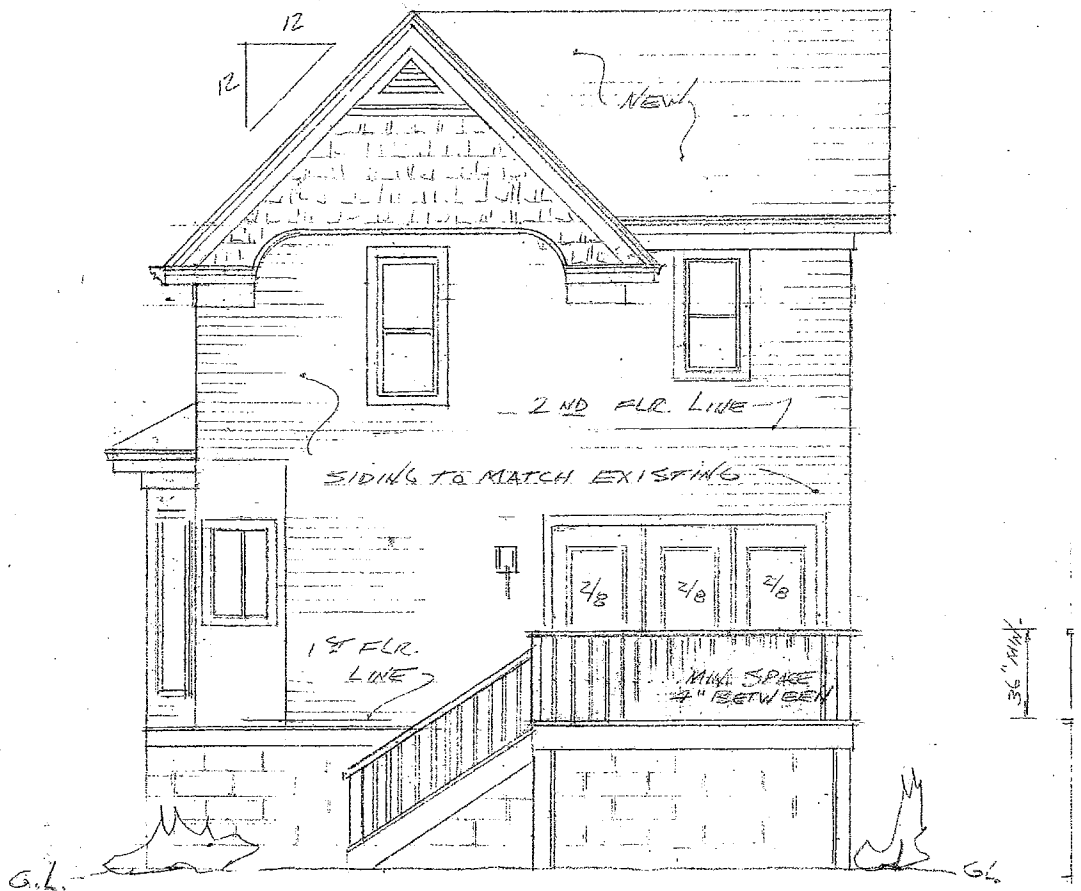 12
12
NEW
2 ND FLR. LINE
SIDING TO MATCH EXISTING
2/8
2/8
2/8
1 ST FLR.
LINE
MIN. SPACE
4" BETWEEN
36" MIN.
G.L.
G.L.